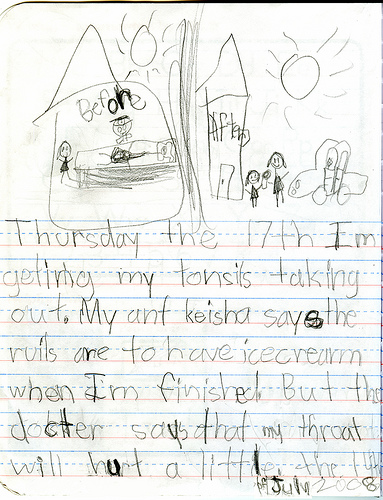 Before
After
Thursday the 17th Im
geting my tonsils taking
out. My ant keisha says the
ruils are to have icecrearm
when Im finished. But the
docter says that my throat
will hurt a little. the 17
of July 2008